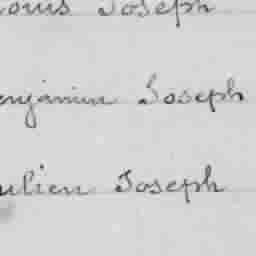 ouis Joseph
enjamin Joseph
ulien Joseph